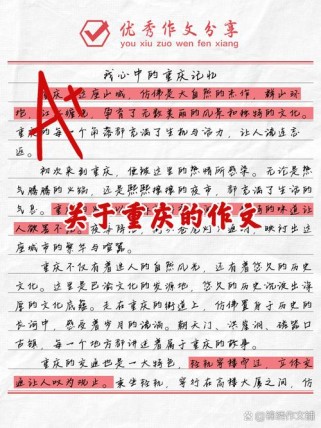 优秀作文分享
you xiu zuo wen fen xiang
我心中的重庆记忆
A+
重庆，这座山城，仿佛是大自然的杰作，群山环
绕，江水缭绕，孕育了无数美丽的风景和独特的文化。
重庆的每一个角落都充满了生机与活力，让人流连忘
返。
初次来到重庆，便被这里的热情所感染。无论是热
气腾腾的火锅，还是熙熙攘攘的夜市，都充满了生活的
气息。重庆的
的味道让
人欲罢不
关于重庆的作文
映衬出这
座城市的繁华与喧嚣。
重庆不仅有着迷人的自然风光，还有着悠久的历史
文化。这里是巴渝文化的发源地，悠久的历史沉淀出深
厚的文化底蕴。走在重庆的街道上，仿佛置身于历史的
长河中，感受着岁月的流淌。朝天门、洪崖洞、磁器口
古镇，每一个地方都讲述着属于重庆的故事。
重庆的交通也是一大特色，轻轨穿楼而过，立体交
通让人叹为观止。乘坐轻轨，穿行在高楼大厦之间，仿